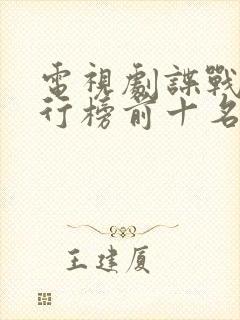 電視劇諜戰
行榜前十名
王建厦